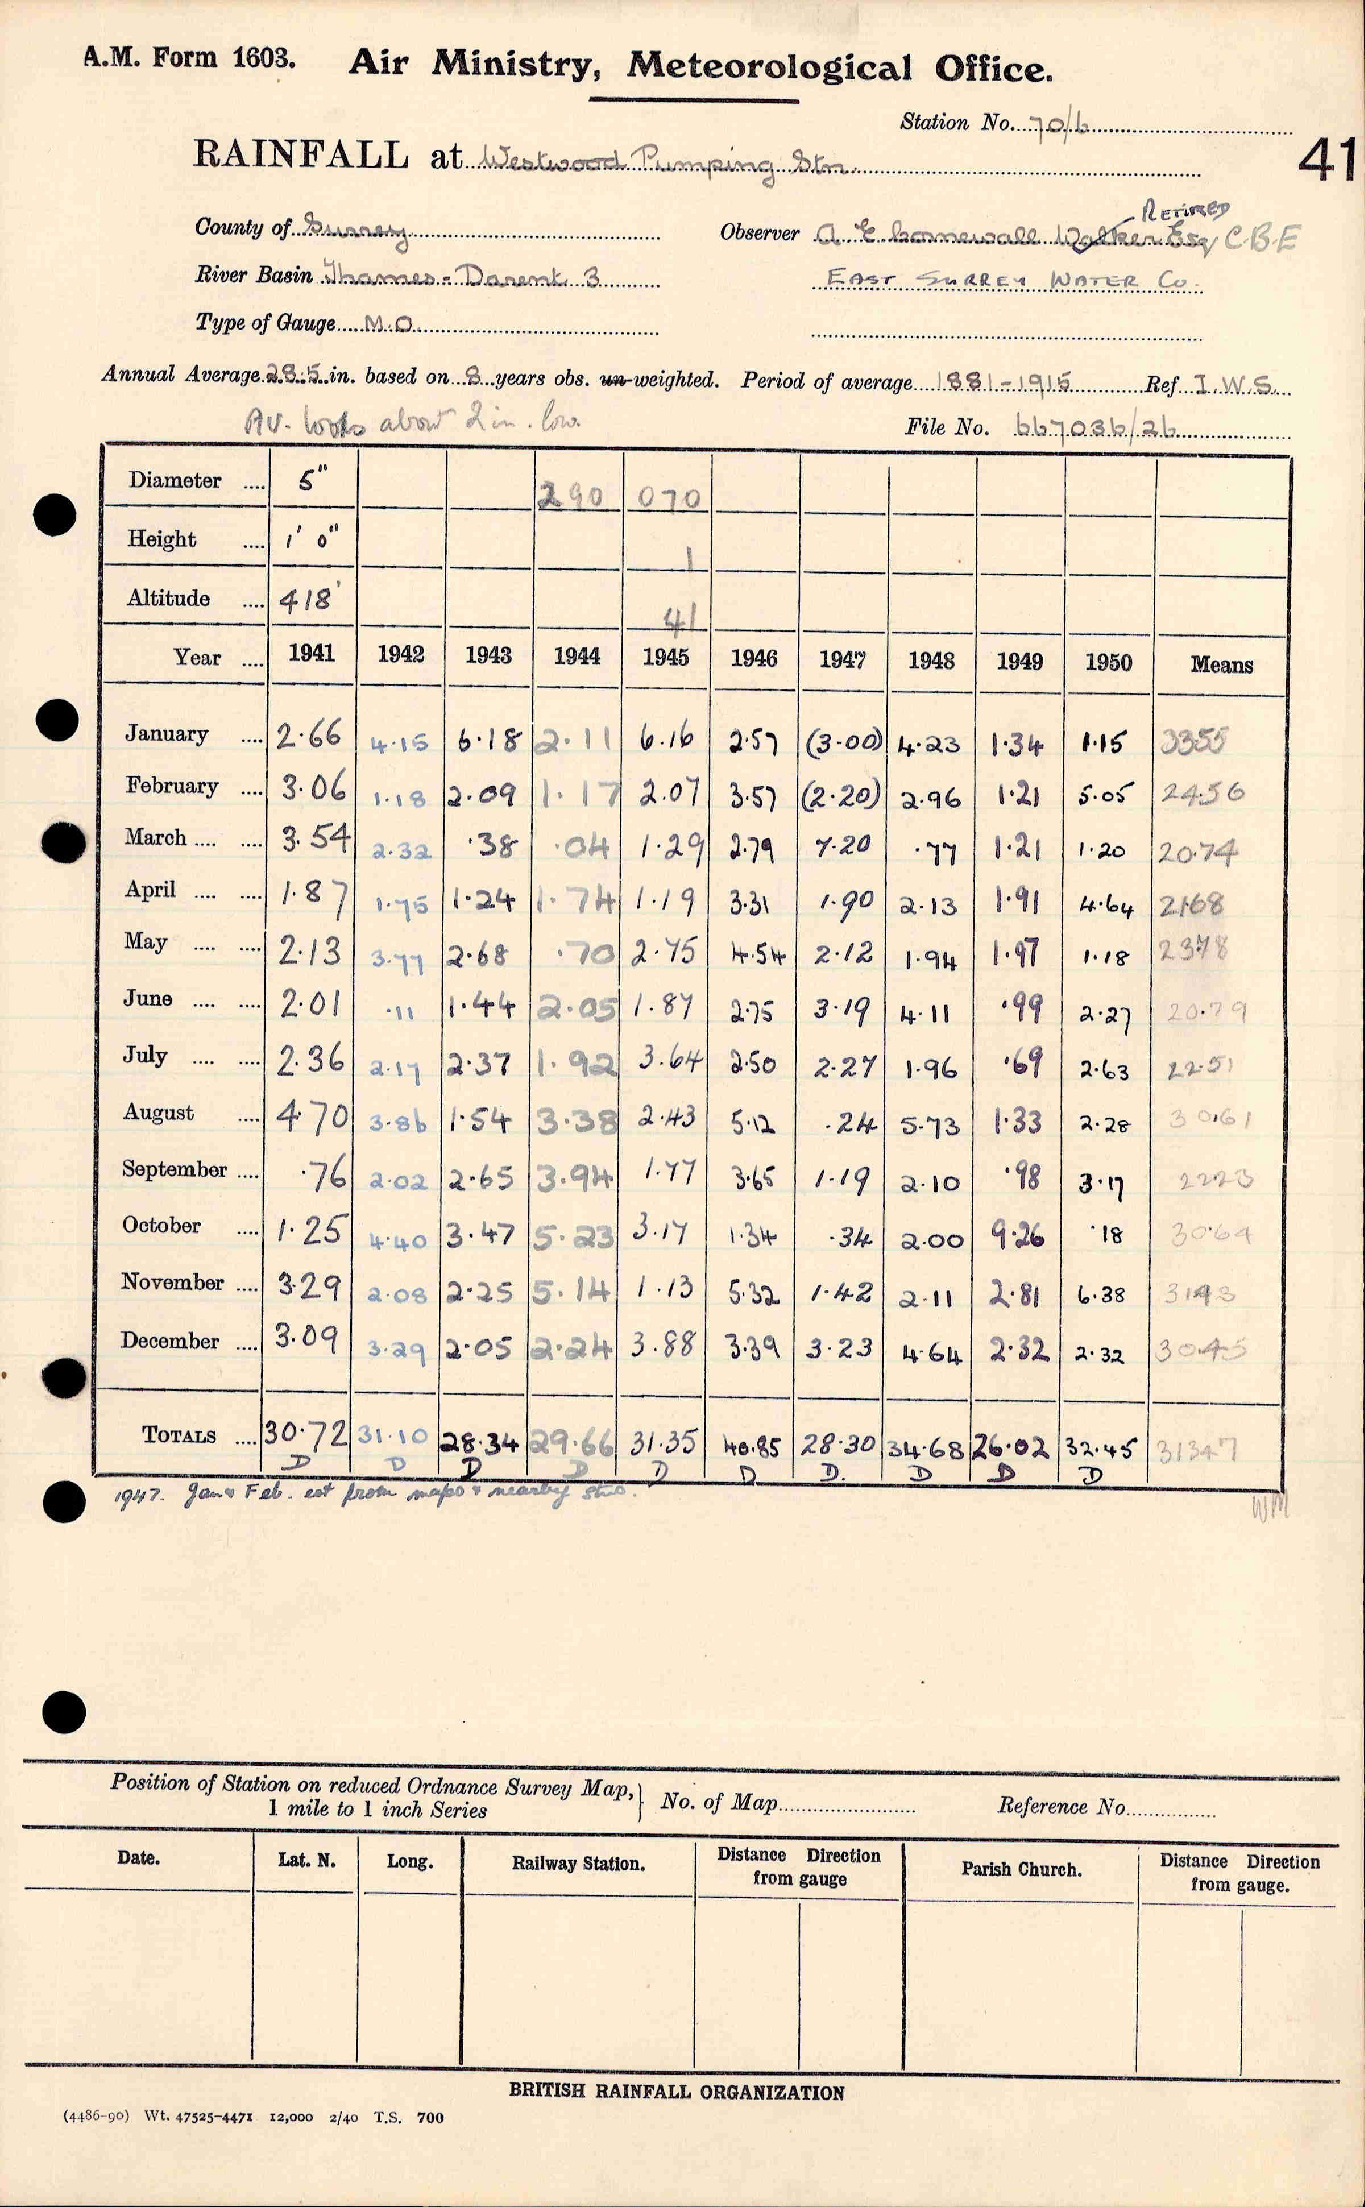 A.M. Form 1603. Air Ministry, Meteorological Office.
Station No. 70/6
41
RAINFALL at Westwood Pumping Stn.
RETIRED
County of Surrey Observer A E Cornewall Walker Esq C.B.E
River Basin Thames - Darent 3 EAST SURREY WATER Co.
Type of Gauge M.O.
Annual Average 28.5 in. based on 8 years obs. un-weighted. Period of average 1881-1915 Ref I.W.S.
Av. looks about 2 in. low.
File No. 667036/26
Diameter .... 5" 290 070
Height .... 1' 0" 1
Altitude .... 418' 41
Year .... 1941 1942 1943 1944 1945 1946 1947 1948 1949 1950 Means
January .... 2.66 4.15 6.18 2.11 6.16 2.57 (3.00) 4.23 1.34 1.15 3355
February .... 3.06 1.18 2.09 1.17 2.07 3.57 (2.20) 2.96 1.21 5.05 2456
March .... .... 3.54 2.32 .38 .04 1.29 2.79 7.20 .77 1.21 1.20 2074
April .... .... 1.87 1.75 1.24 1.74 1.19 3.31 1.90 2.13 1.91 4.64 2168
May .... .... 2.13 3.77 2.68 .70 2.75 4.54 2.12 1.94 1.97 1.18 2378
June .... .... 2.01 .11 1.44 2.05 1.87 2.75 3.19 4.11 .99 2.27 20.79
July .... .... 2.36 2.17 2.37 1.92 3.64 2.50 2.27 1.96 .69 2.63 22.51
August .... 4.70 3.86 1.54 3.38 2.43 5.12 .24 5.73 1.33 2.28 30.61
September .... .76 2.02 2.65 3.94 1.77 3.65 1.19 2.10 .98 3.17 2223
October .... 1.25 4.40 3.47 5.23 3.17 1.34 .34 2.00 9.26 .18 30.64
November .... 3.29 2.08 2.25 5.14 1.13 5.32 1.42 2.11 2.81 6.38 3193
December .... 3.09 3.29 2.05 2.24 3.88 3.39 3.23 4.64 2.32 2.32 3045
TOTALS .... 30.72 31.10 28.34 29.66 31.35 40.85 28.30 34.68 26.02 32.45 31347
D D D D D D D. D D D
1947. Jan & Feb. est from maps & nearby stns.
WM
Position of Station on reduced Ordnance Survey Map, } No. of Map Reference No.
1 mile to 1 inch Series
Date. Lat. N. Long. Railway Station. Distance Direction from gauge Parish Church. Distance Direction from gauge.
BRITISH RAINFALL ORGANIZATION
(4486-90) Wt. 47525-4471 12,000 2/40 T.S. 700